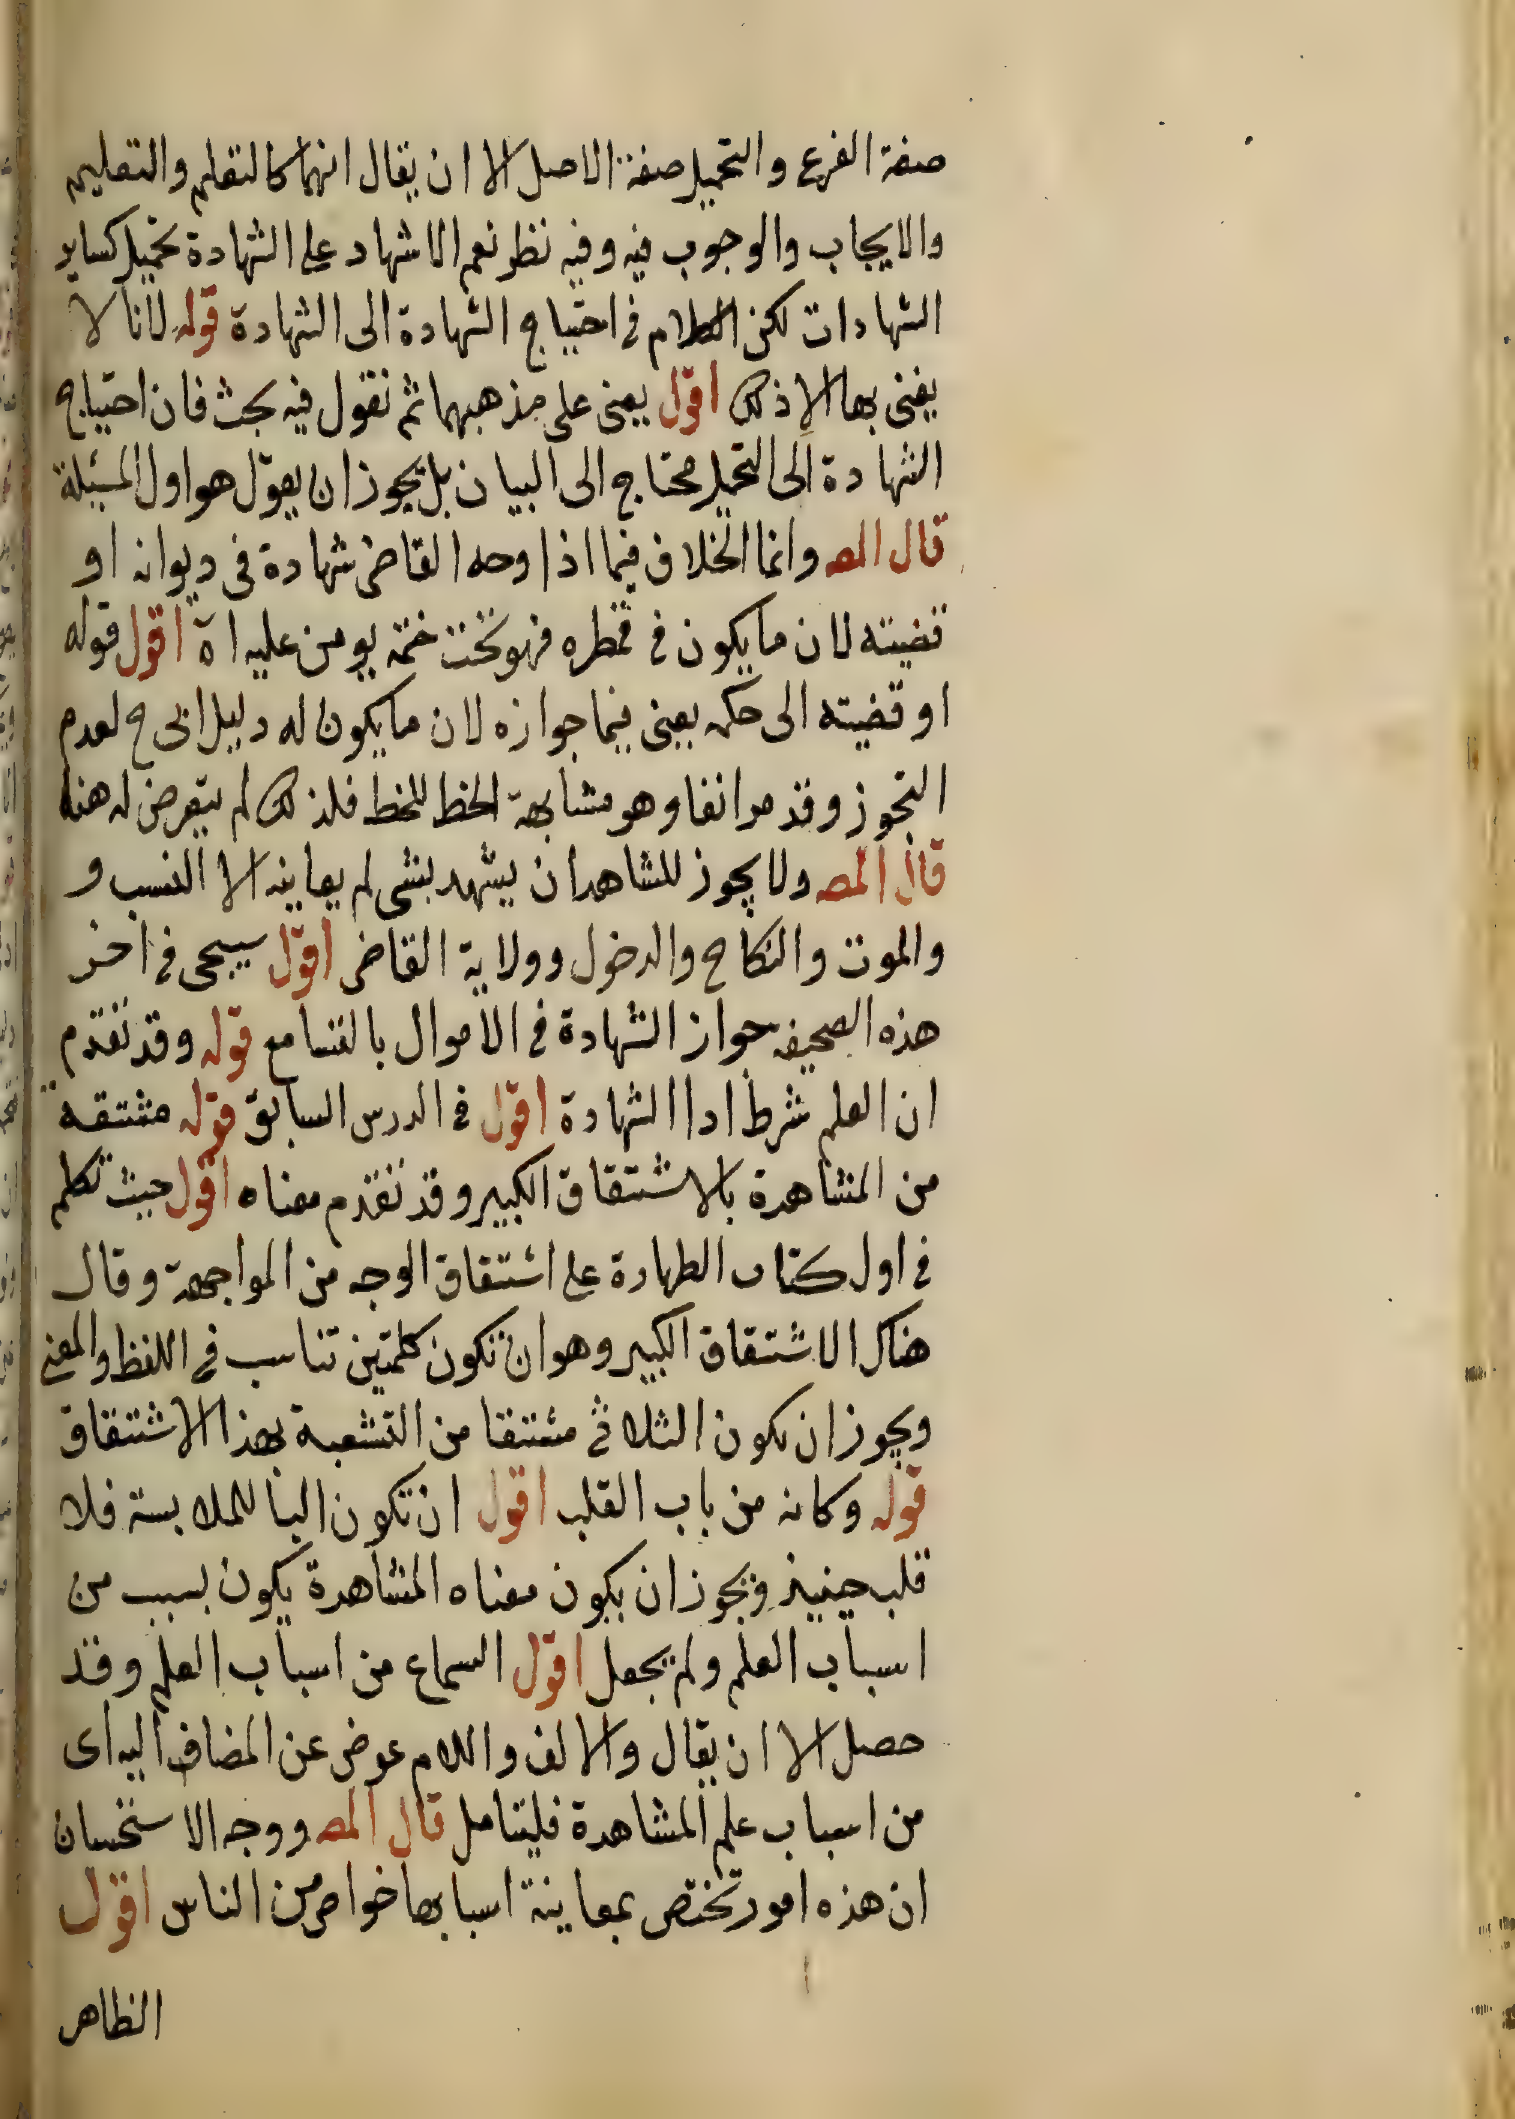 صفة الفرع والتحميل صفة الاصل الا ان يقال انهما كالتعلم والتعليم
والايجاب والوجوب فيه وفيه نظر نعم الاشهاد على الشهادة تحميل كساير
الشهادات لكن الكلام فى احتياج الشهادة الى الشهادة قوله لانا لا
يعنى بها الا ذلك اقول يعنى على مذهبهما ثم نقول فيه بحث فان احتياج
الشهادة الى التحميل محتاج الى البيان بل يجوز ان يقول هو اول المسئلة
قال المص وانما الخلاف فيما اذا وجد القاضى شهادة فى ديوانه او
قضيته لان ما يكون فى قمطره فهو تحت ختمه يومن عليه اه اقول قوله
او قضيته الى حكمه يعنى فيما جوازه لان ما يكون له دليل ابى ح لعدم
التجوز وقد مر انفا وهو مشابهة الخط للخط فلذلك لم يتعرض له هنا
قال المص ولا يجوز للشاهد ان يشهد بشى لم يعاينه الا النسب و
والموت والنكاح والدخول وولاية القاضى اقول سيجى فى اخر
هذه الصحيفه جواز الشهادة فى الاموال بالتسامع قوله وقد تقدم
ان العلم شرط ادا الشهادة اقول فى الدرس السابق قوله مشتقه
من المشاهدة بالاشتقاق الكبير وقد تقدم معناه اقول حيث تكلم
فى اول كتاب الطهارة على اشتقاق الوجه من المواجهة وقال
هناك الاشتقاق الكبير وهو ان تكون كلمتين تناسب فى اللفظ والمعنى
ويجوز ان يكون الثلاثى مشتقا من التشعبة بهذا الاشتقاق
قوله وكانه من باب القلب اقول ان تكون البا للملابسة فلا
قلب حينيذ ويجوز ان يكون معناه المشاهدة يكون بسبب من
اسباب العلم ولم يجعل اقول السماع من اسباب العلم وقد
حصل الا ان يقال والالف واللام عوض عن المضاف اليه اى
من اسباب علم المشاهدة فليتامل قال المص ووجه الاستحسان
ان هذه امور تختص بمعاينة اسبابها خواص من الناس اقول
الظاهر